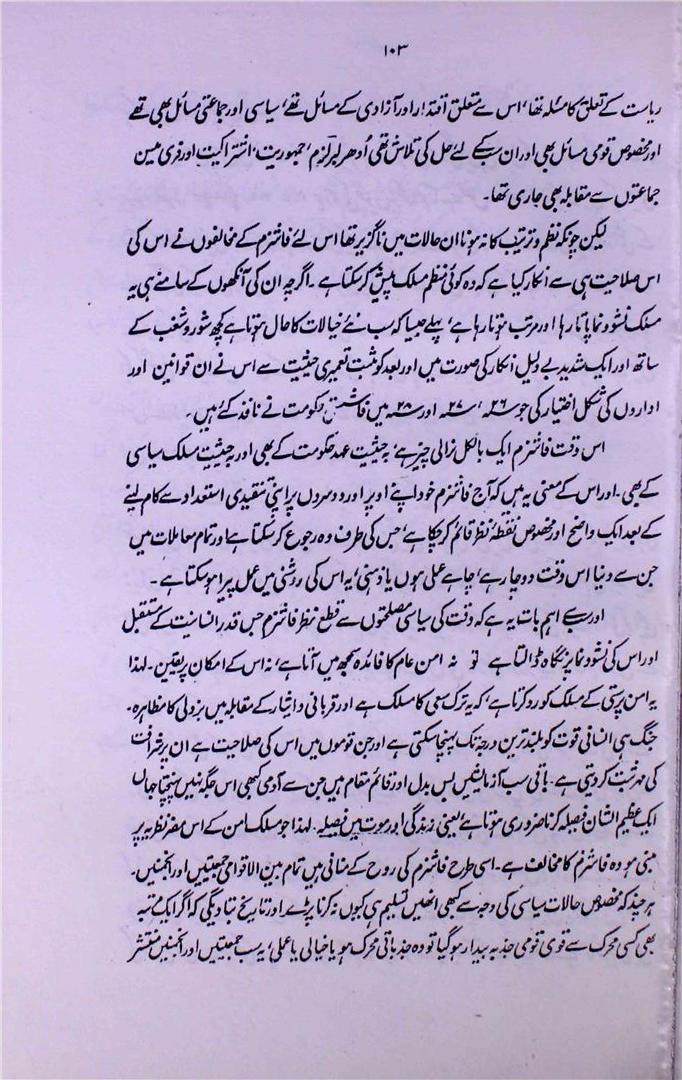 ۱۰۳
ریاست کے تعلق کا مسئلہ تھا، اس سے متعلق اقتدار اور آزادی کے مسائل تھے، سیاسی اور جماعتی مسائل بھی تھے
اور مخصوص قومی مسائل بھی اور ان سب کے لئے حل کی تلاش تھی اُدھر لبرلزم، جمہوریت، اشتراکیت اور فری میسن
جماعتوں سے مقابلہ بھی جاری تھا۔
لیکن چونکہ نظم و ترتیب کا نہ ہونا ان حالات میں ناگزیر تھا اس لئے فاشزم کے مخالفوں نے اس کی
اس صلاحیت ہی سے انکار کیا ہے کہ وہ کوئی منظم مسلک پیش کر سکتا ہے۔ اگرچہ ان کی آنکھوں کے سامنے ہی یہ
مسلک نشو و نما پاتا رہا اور مرتب ہوتا رہا ہے، پہلے جیسا کہ سب نئے خیالات کا حال ہوتا ہے کچھ شور و شغب کے
ساتھ اور ایک شدید بے دلیل انکار کی صورت میں اور بعد کو مثبت تعمیری حیثیت سے اس نے ان قوانین اور
اداروں کی شکل اختیار کی جو ۲۶ء، ۲۷ء اور ۲۸ء میں فاشستی حکومت نے نافذ کئے ہیں۔
اس وقت فاشزم ایک بالکل نرالی چیز ہے، بہ حیثیت عہد حکومت کے بھی اور بہ حیثیت مسلک سیاسی
کے بھی۔ اور اس کے معنی یہ ہیں کہ آج فاشزم خود اپنے اوپر اور دوسروں پر اپنی تنقیدی استعداد سے کام لینے
کے بعد ایک واضح اور مخصوص نقطۂ نظر قائم کر چکا ہے، جس کی طرف وہ رجوع کر سکتا ہے اور تمام معاملات میں
جن سے دنیا اس وقت دوچار ہے، چاہے عملی ہوں یا ذہنی، یہ اس کی روشنی میں عمل پیرا ہو سکتا ہے۔
اور سب سے اہم بات یہ ہے کہ وقت کی سیاسی مصلحتوں سے قطع نظر فاشزم جس قدر انسانیت کے مستقبل
اور اس کی نشو و نما پر نگاہ ڈالتا ہے تو نہ امن عام کا فائدہ سمجھ میں آتا ہے، نہ اس کے امکان پر یقین۔ لہذا
یہ امن پرستی کے مسلک کو رد کرتا ہے، کہ یہ ترک سعی کا مسلک ہے اور قربانی و ایثار کے مقابلہ میں بزدلی کا مظاہرہ۔
جنگ ہی انسانی قوت کو بلند ترین درجہ تک پہنچا سکتی ہے اور جن قوموں میں اس کی صلاحیت ہے ان پر شرافت
کی مہر ثبت کر دیتی ہے۔ باقی سب آزمائشیں بس بدل اور قائم مقام ہیں جن سے آدمی کبھی اس جگہ نہیں پہنچتا جہاں
ایک عظیم الشان فیصلہ کرنا ضروری ہوتا ہے یعنی زندگی اور موت میں فیصلہ۔ لہذا جو مسلک امن کے اس مضر نظریہ پر
مبنی ہو وہ فاشزم کا مخالف ہے۔ اسی طرح فاشزم کی روح کے منافی ہیں تمام بین الاقوامی جمعیتیں اور انجمنیں۔
ہر چند کہ مخصوص حالات سیاسی کی وجہ سے کبھی انھیں تسلیم ہی کیوں نہ کرنا پڑے اور تاریخ بتا دیگی کہ اگر ایک مرتبہ
بھی کسی محرک سے قوی قومی جذبہ بیدار ہو گیا تو وہ جذباتی محرک ہو یا خیالی یا عملی، یہ سب جمعیتیں اور انجمنیں منتشر